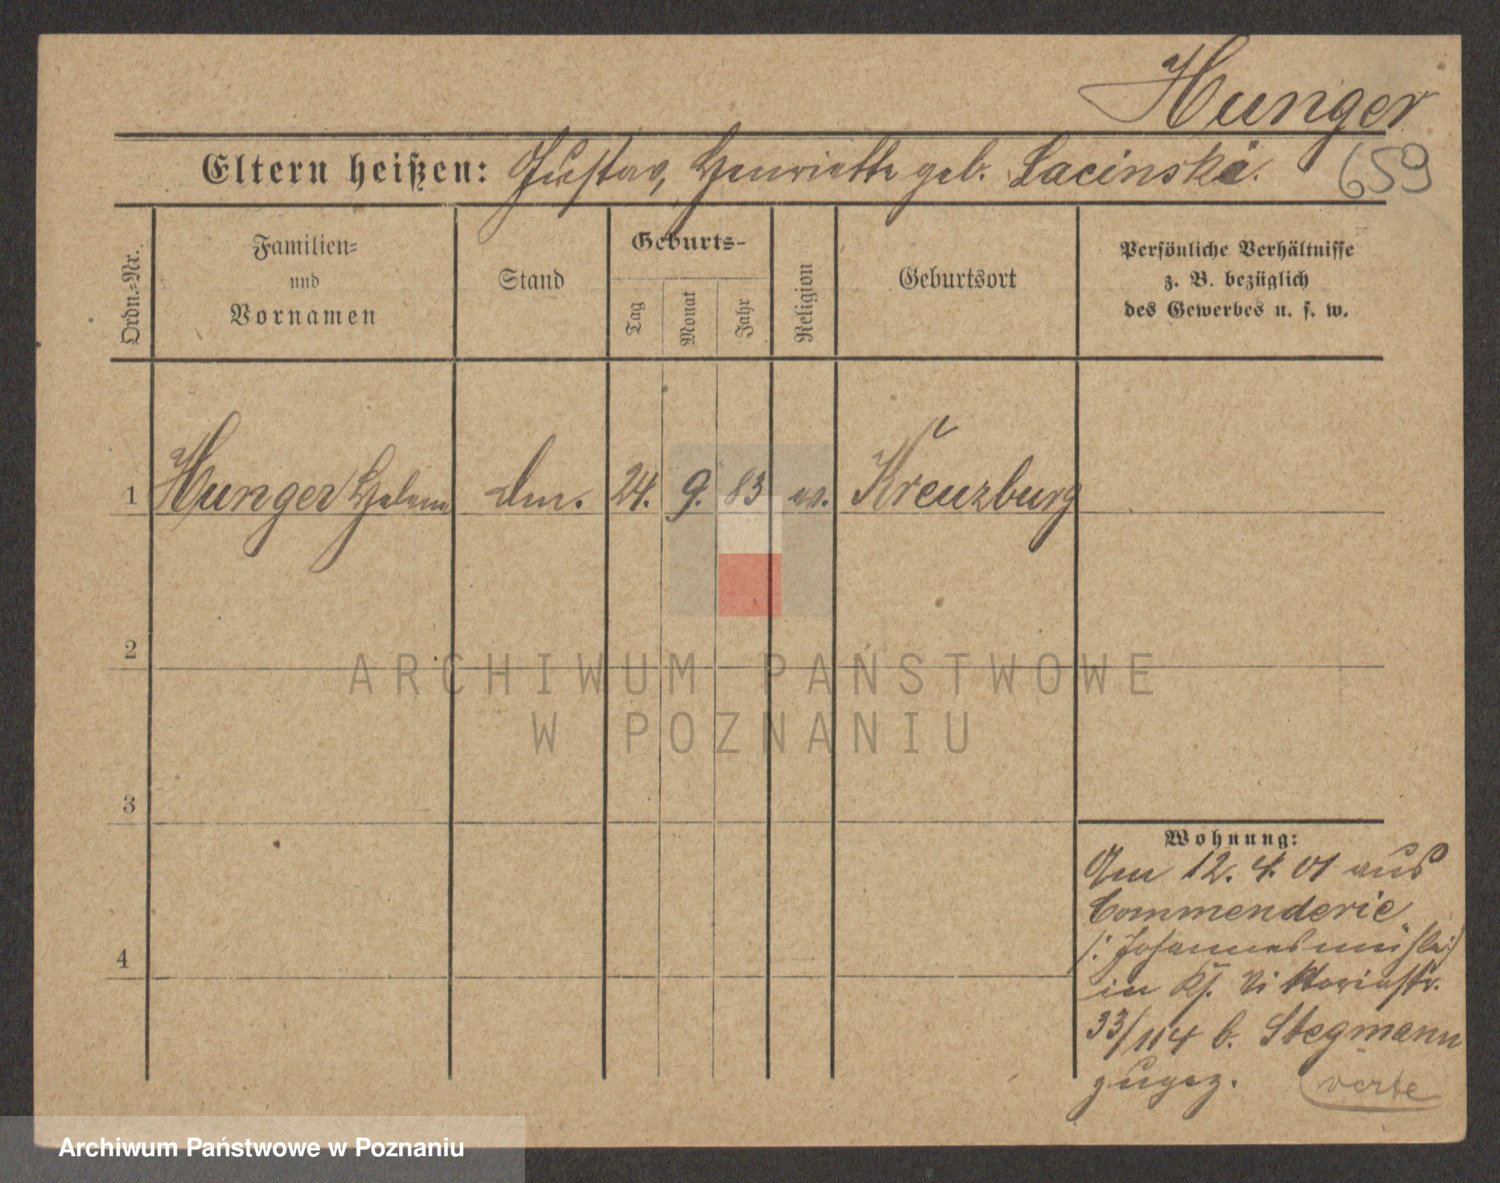 Hunger
659
Eltern heißen: Gustav, Henriette geb. Lacinska.
Ordn.=Nr.
Familien=
und
Vornamen
Stand
Geburts-
Tag
Monat
Jahr
Religion
Geburtsort
Persönliche Verhältnisse
z. B. bezüglich
des Gewerbes u. s. w.
1 Hunger Helene 24. 9. 83 ev. Kreuzburg
2
3
4
Wohnung:
Am 12. 4. 01 aus
Commenderie
/: Johannesmühle :/
in Viktoriastr.
33/114 b. Stegmann
zugez. verte
ARCHIWUM PAŃSTWOWE
W POZNANIU
Archiwum Państwowe w Poznaniu